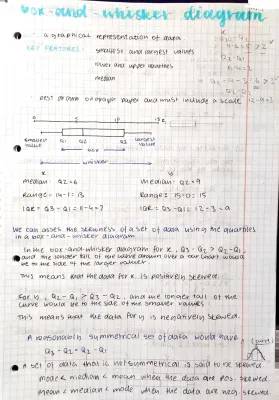 box-and-whisker diagram
- a graphical representation of data
KEY FEATURES:
smallest and largest values
lower and upper quartiles
median
best drawn on graph paper and must include a scale
smallest value
Q1
Q2
Q3
largest value
box
whisker
x
y
median: Q2 = 6
median: Q2 = 9
Range: 14-1 = 13
Range: 15-0 = 15
IQR = Q3-Q1 = 11-4 = 7
IQR = Q3-Q1 = 12-3 = 9
We can assess the skewness of a set of data using the quartiles
in a box-and-whisker diagram.
In the box-and-whisker diagram for x, Q3-Q2 > Q2-Q1,
and the longer tail of the curve drawn over a bar chart would
be to the side of the larger values.
This means that the data for x is positively skewed.
For y, Q2-Q1 > Q3-Q2, and the longer tail of the
curve would be to the side of the smaller values.
This means that the data for y is negatively skewed.
A reasonably symmetrical set of data would have
Q3-Q2 = Q2-Q1
A set of data that is not symmetrical is said to be skewed
mode < median < mean when the data are pos. skewed
mean < median < mode when the data are neg. skewed